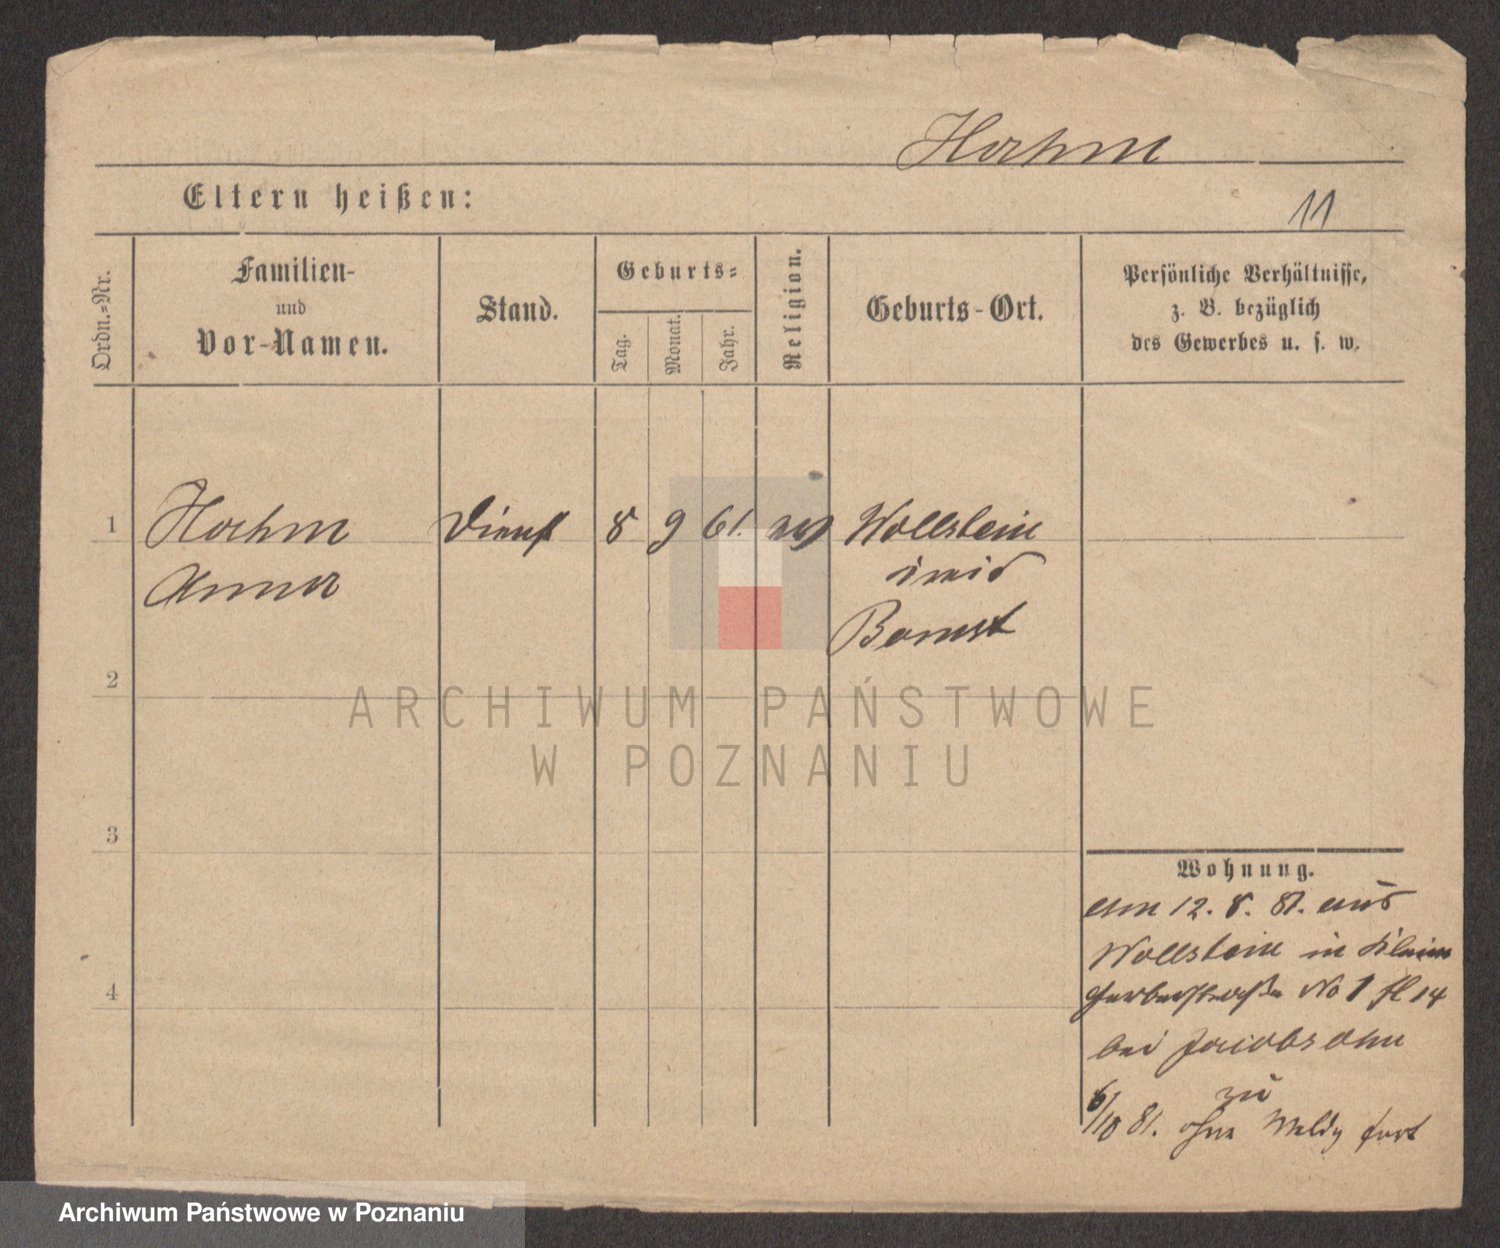 Hahm
Eltern heißen:
11
Ordn.-Nr.
Familien-
und
Vor-Namen.
Stand.
Geburts-
Tag.
Monat.
Jahr.
Religion.
Geburts-Ort.
Persönliche Verhältnisse,
z. B. bezüglich
des Gewerbes u. s. w.
1
Hahm Dienst 8 9 61. Wollstein
Anna
Bomst
2
ARCHIWUM PAŃSTWOWE
W POZNANIU
3
Wohnung.
Am 12. 8. 81. aus
Wollstein in Klein
Gerberstraße No 1
bei Jacobsohn
zu
6/10 81. ohne Meldg fort
4
Archiwum Państwowe w Poznaniu